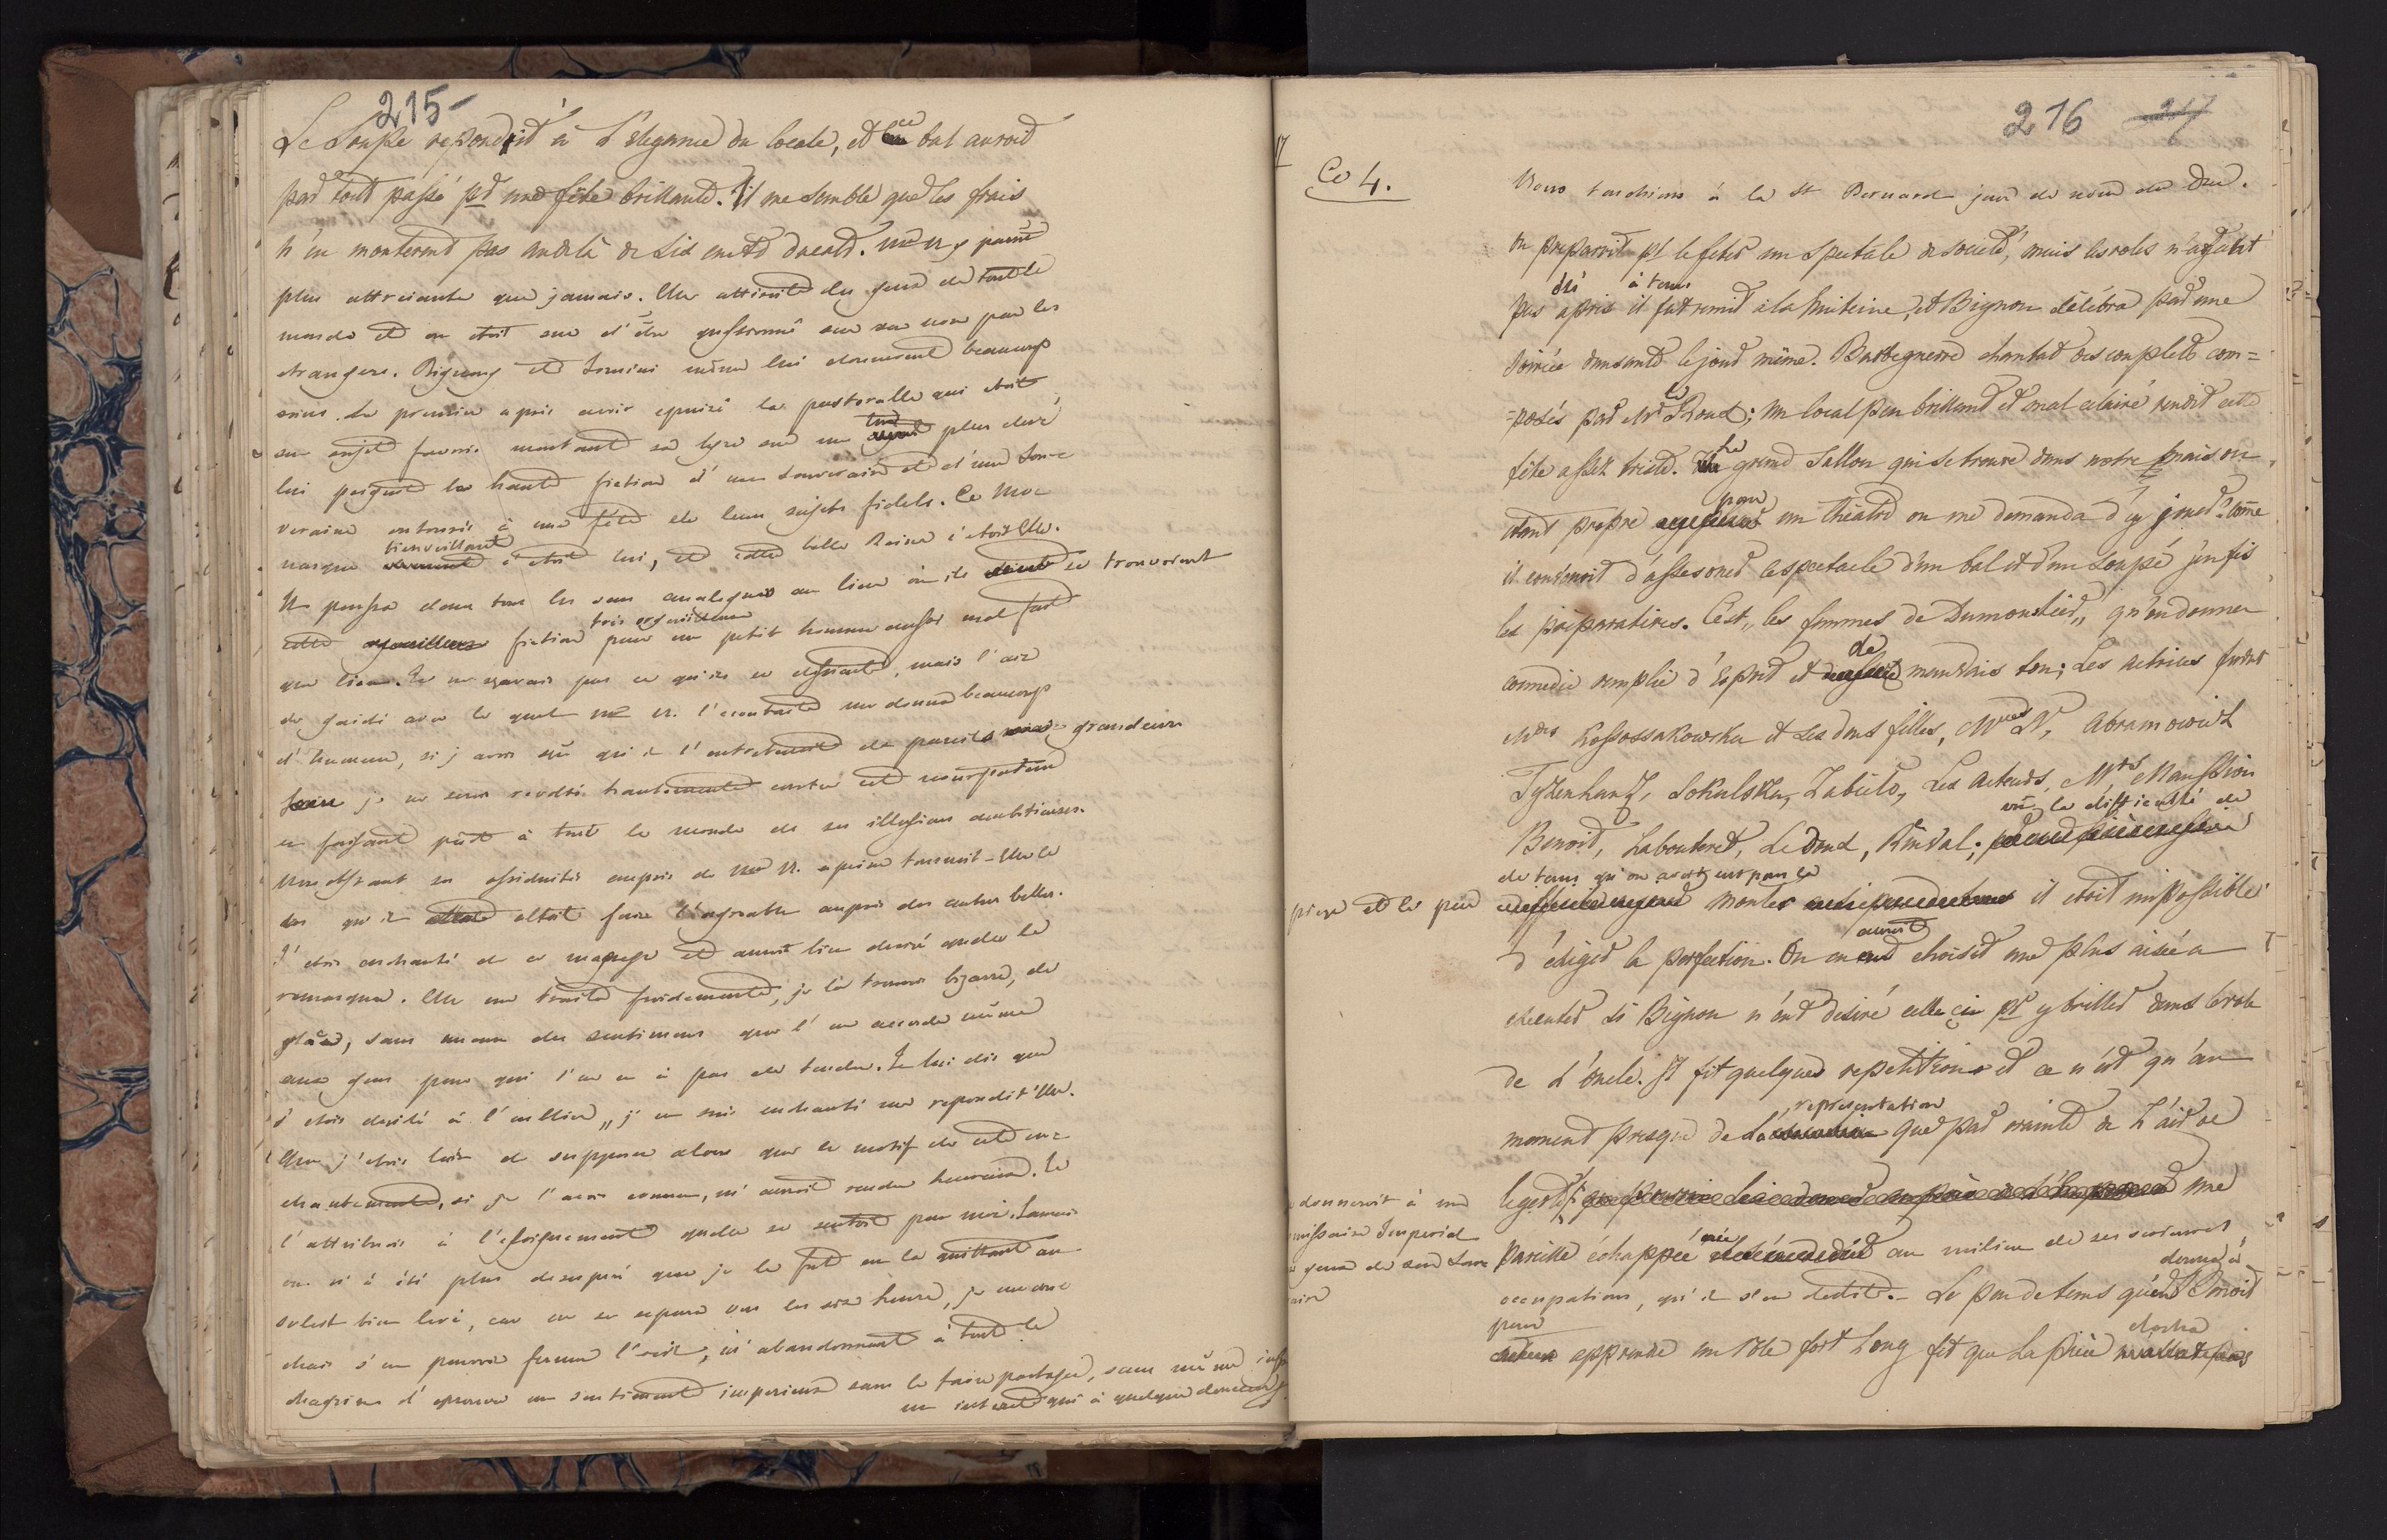 215-
Le Soupé repondit à l'élegance du locale, et ce bal auroit
par tout passé pr une fête brillante. Il me semble que les frais
n'en monterent pas audela de six cents ducats. Me N. y parut
plus attraiante que jamais. Elle attiroit les yeux de tout le
monde et on etoit sur d'être questionné sur son nom par les
etrangers. Bignon et Tomini même lui donnerent beaucoup
soins. Le premier apris avoir epuisé la pastoralle qui etoit
son sujet favori montant sa lyre sur un ton plus elevé
lui peignit la haute fiction d'un souverain et d'une Sou-
veraine entourés à une fête de leurs sujets fidels. Ce Mo-
narque bienveillant c'etoit lui, et cette belle Reine c'etoit Elle.
Il poussa dans tous les sens analogues au lieu où ils se trouvoient
cette fiction trés orgueilleuse pour un petit homme aussi mal fait
que lui. Je ne savais pas ce qu'ils se disoient, mais l'air
de gaité avec le quel Me N. l'ecoutoit me donna beaucoup
d'humeur, si j'avois sçû qu'il l'entretenoit de pareils grandeurs
je me serois revolté hautement contre cette usurpation
en faisant part à tout le monde de ses illusions ambitieuses.
Nonobstant ses assiduités auprés de Me N. a peine tournoit-Elle le
dos qu'il alloit faire l'agreable auprés des autres belles.
J'etois enchanté de ce manege et aurois bien desiré qu'elle le
remarqua. Elle me traita froidement, je la trouvai bizarre, de
glace, sans aucun des sentimens que l'on accorde même
aux gens pour qui l'on n'a pas de tendre. Je lui dis que
j'etois decidé à l'oublier „ j'en suis enchanté me repondit'Elle.
Que j'etois loin de supposer alors que le motif de cet en-
chantement, si je l'avois connu, m'auroit rendu heureux. Je
l'attribuai à l'eloignement qu'elle se sentoit pour moi. Jamais
on n'a été plus desesperé que je le fut en la quittant au
soleil bien levé, car on se separa vers les six heures, je me cou-
chai s'en pouvoir fermer l'oeil, m'abandonnant à tout le
chagrin d'eprouver un sentiment imperieux sans le faire partager, sans même
un interet qui a quelque douceur
216 217
Co 4.
Nous touchions à la St Bernard jour de nom de Duc.
On préparoit pr le fêter un Spectacle de societé, mais les roles n'ayant
pas été apris à tems il fut remit à la huiteine, et Bignon célébra par une
soirée dansante le jour même. Bastegnerre chanta des couplets com=
=posés par Mr Le Roux; un local peu brillant et mal eclairé rendit cette
fête assez triste. Le grand Sallon qui se trouve dans notre maison
etant propre pour un théatre on me demanda d'y jouer. Come
il convenoit d'assesoner le spectacle d'un bal et d'un soupé j'en fis
les préparatives. C'est „ les femmes de Dumoustier „ qu'on donna
comedie remplie d'esprit et de mauvais ton; Les actrices furent
Mdes Kossossakowska et ses deux filles, Mlles N, Abramowicz
Tyzenhauz, Sokulska, Zabiełło, Les Acteurs, Mrs Manssion
Benoit, Labouteret, Ledoux, Rindal; vû la difficulté de
piece et le peu de tems qu'on avoit eut pour la monter il etoit impossible
d'éxiger la perfection. On en auroit choisit une plus aisée a
executer si Bignon n'eut desiré celle cie pr y briller dans le role
de l'oncle. Il fit quelques repetitions et ce n'est qu'au
moment presque de la representation que par crainte de l'air de
legerté que donneroit à un
missaire Imperial
yeux de son Souve
raine
une
pareille échappée au milieu de ses serieuses
occupations, qu'il s'en dedit. Le peu de tems qu'eut Benoit
pour apprendre un role fort long fit que la piéce clocha